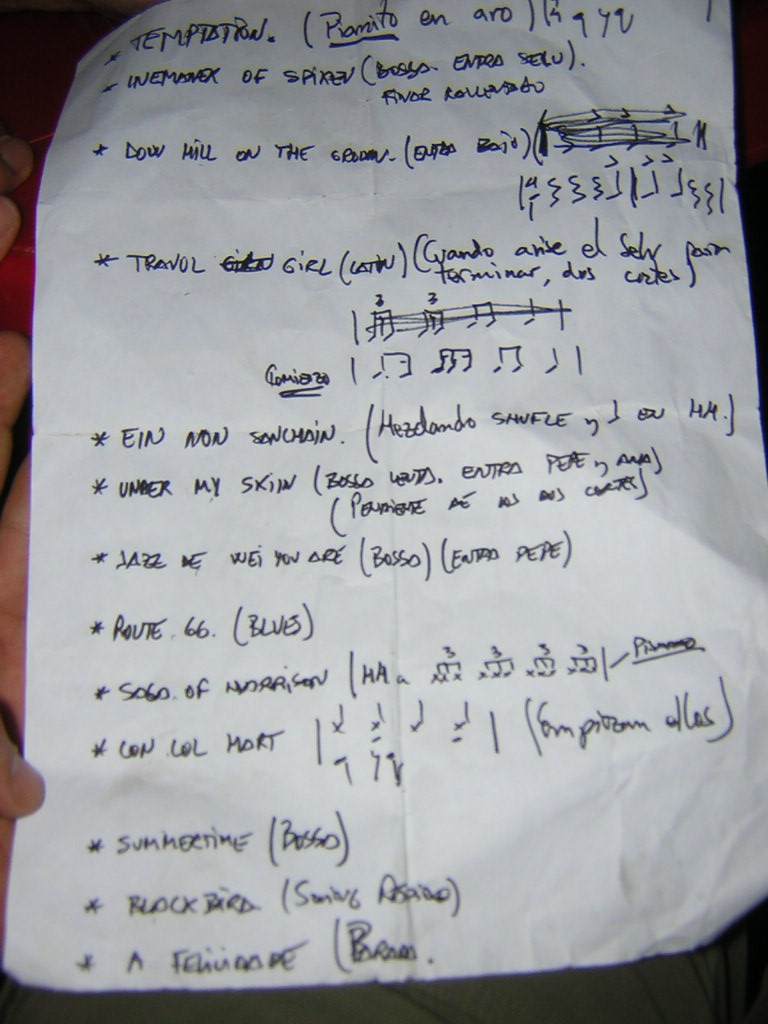 * TEMPTATION. (Pianito en aro)
* INEMANEX OF SPIREN (BOSSA. ENTRA SELU).
FINAL RALLENTADO
* DOW HILL ON THE GROUMN. (ENTRA BAJO)
* TRAVOL GIRL (LATIN) (Cuando avise el Selu para
terminar, dos cortes)
3 3
Comienzo
* EIN NON SANCHAIN. (Mezclando SHUFLE y EN HH.)
* UNDER MY SKIIN (BOSSO LENTA. ENTRA PEPE y ANA)
(PENDIENTE DE LOS DOS CORTES)
* JAZZ DE WEI YOU ARE (BOSSO) (ENTRA PEPE)
* ROUTE 66. (BLUES)
* SOGO OF MORRISON | HH a 3 3 3 3
* CON COL MORT (Empiezan ellos)
* SUMMERTIME (BOSSO)
* BLOCKBIRD (Swing Rapido)
* A FELICIDADE (